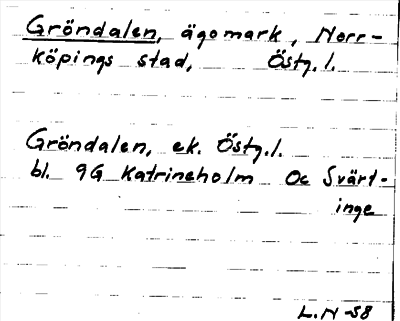 Gröndalen, ägomark, Norr-
köpings stad, Östg. l.
Gröndalen, ek. Östg. l.
bl. 9G Katrineholm Oc Svärt-
inge
L.N -58